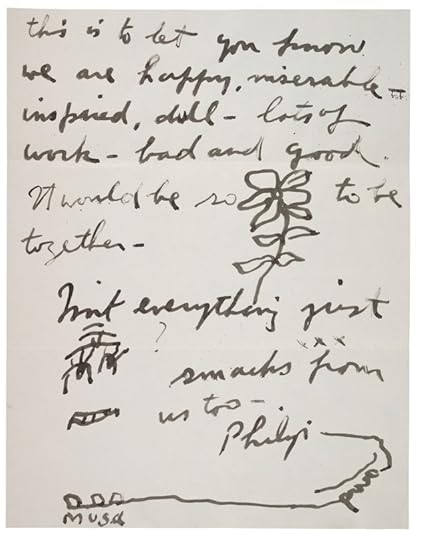 this is to let you know
we are happy, miserable –
inspired, dull – lots of
work – bad and good.
It would be so to be
together –
Isn't everything just
?
xxx
smacks from
us too –
Philip
MUSA